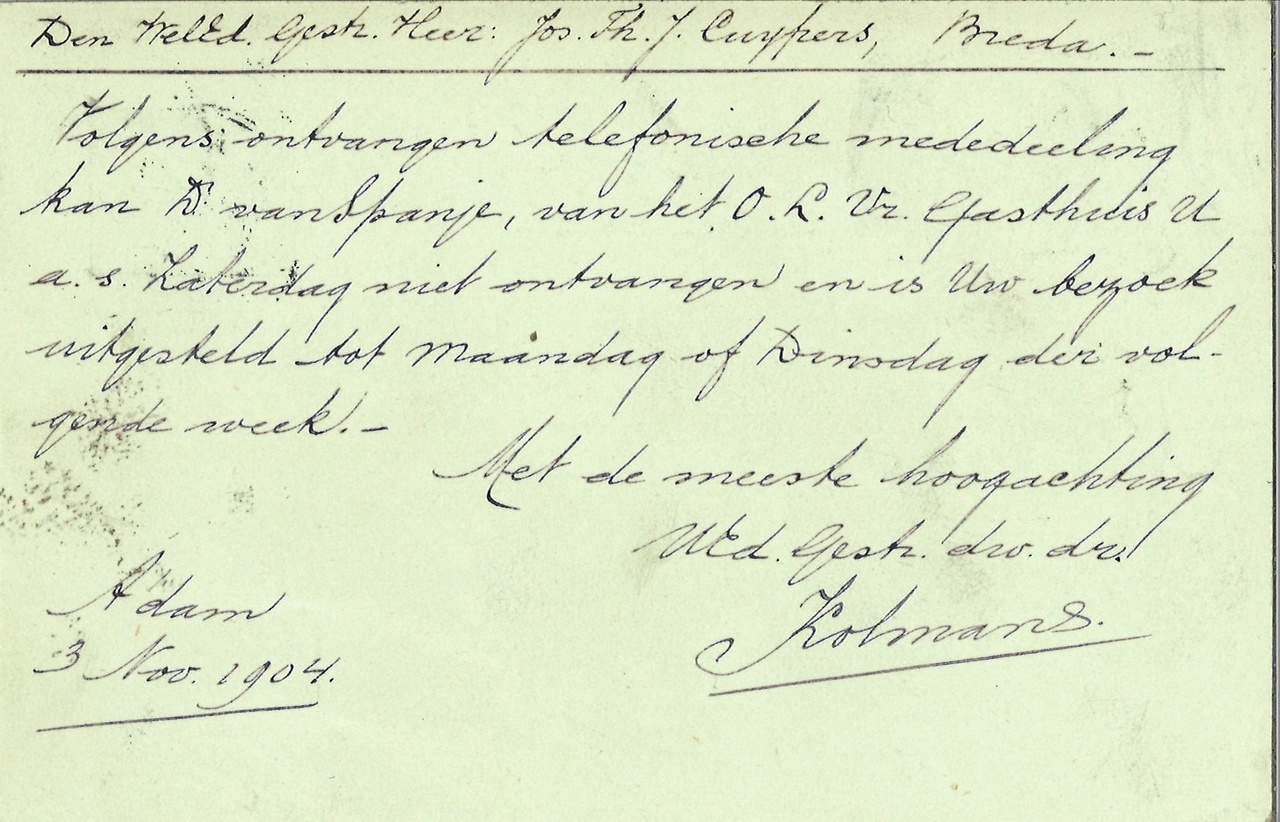 Den WelEd. Gestr. Heer: Jos. Th. J. Cuypers, Breda. -
Volgens ontvangen telefonische mededeeling
kan Dr. van Spanje, van het O. L. Vr. Gasthuis U
a. s. Zaterdag niet ontvangen en is Uw bezoek
uitgesteld tot Maandag of Dinsdag der vol-
gende week. -
Met de meeste hoogachting
UEd. Gestr. dw. dr.
Adam
Kolmans.
3 Nov. 1904.